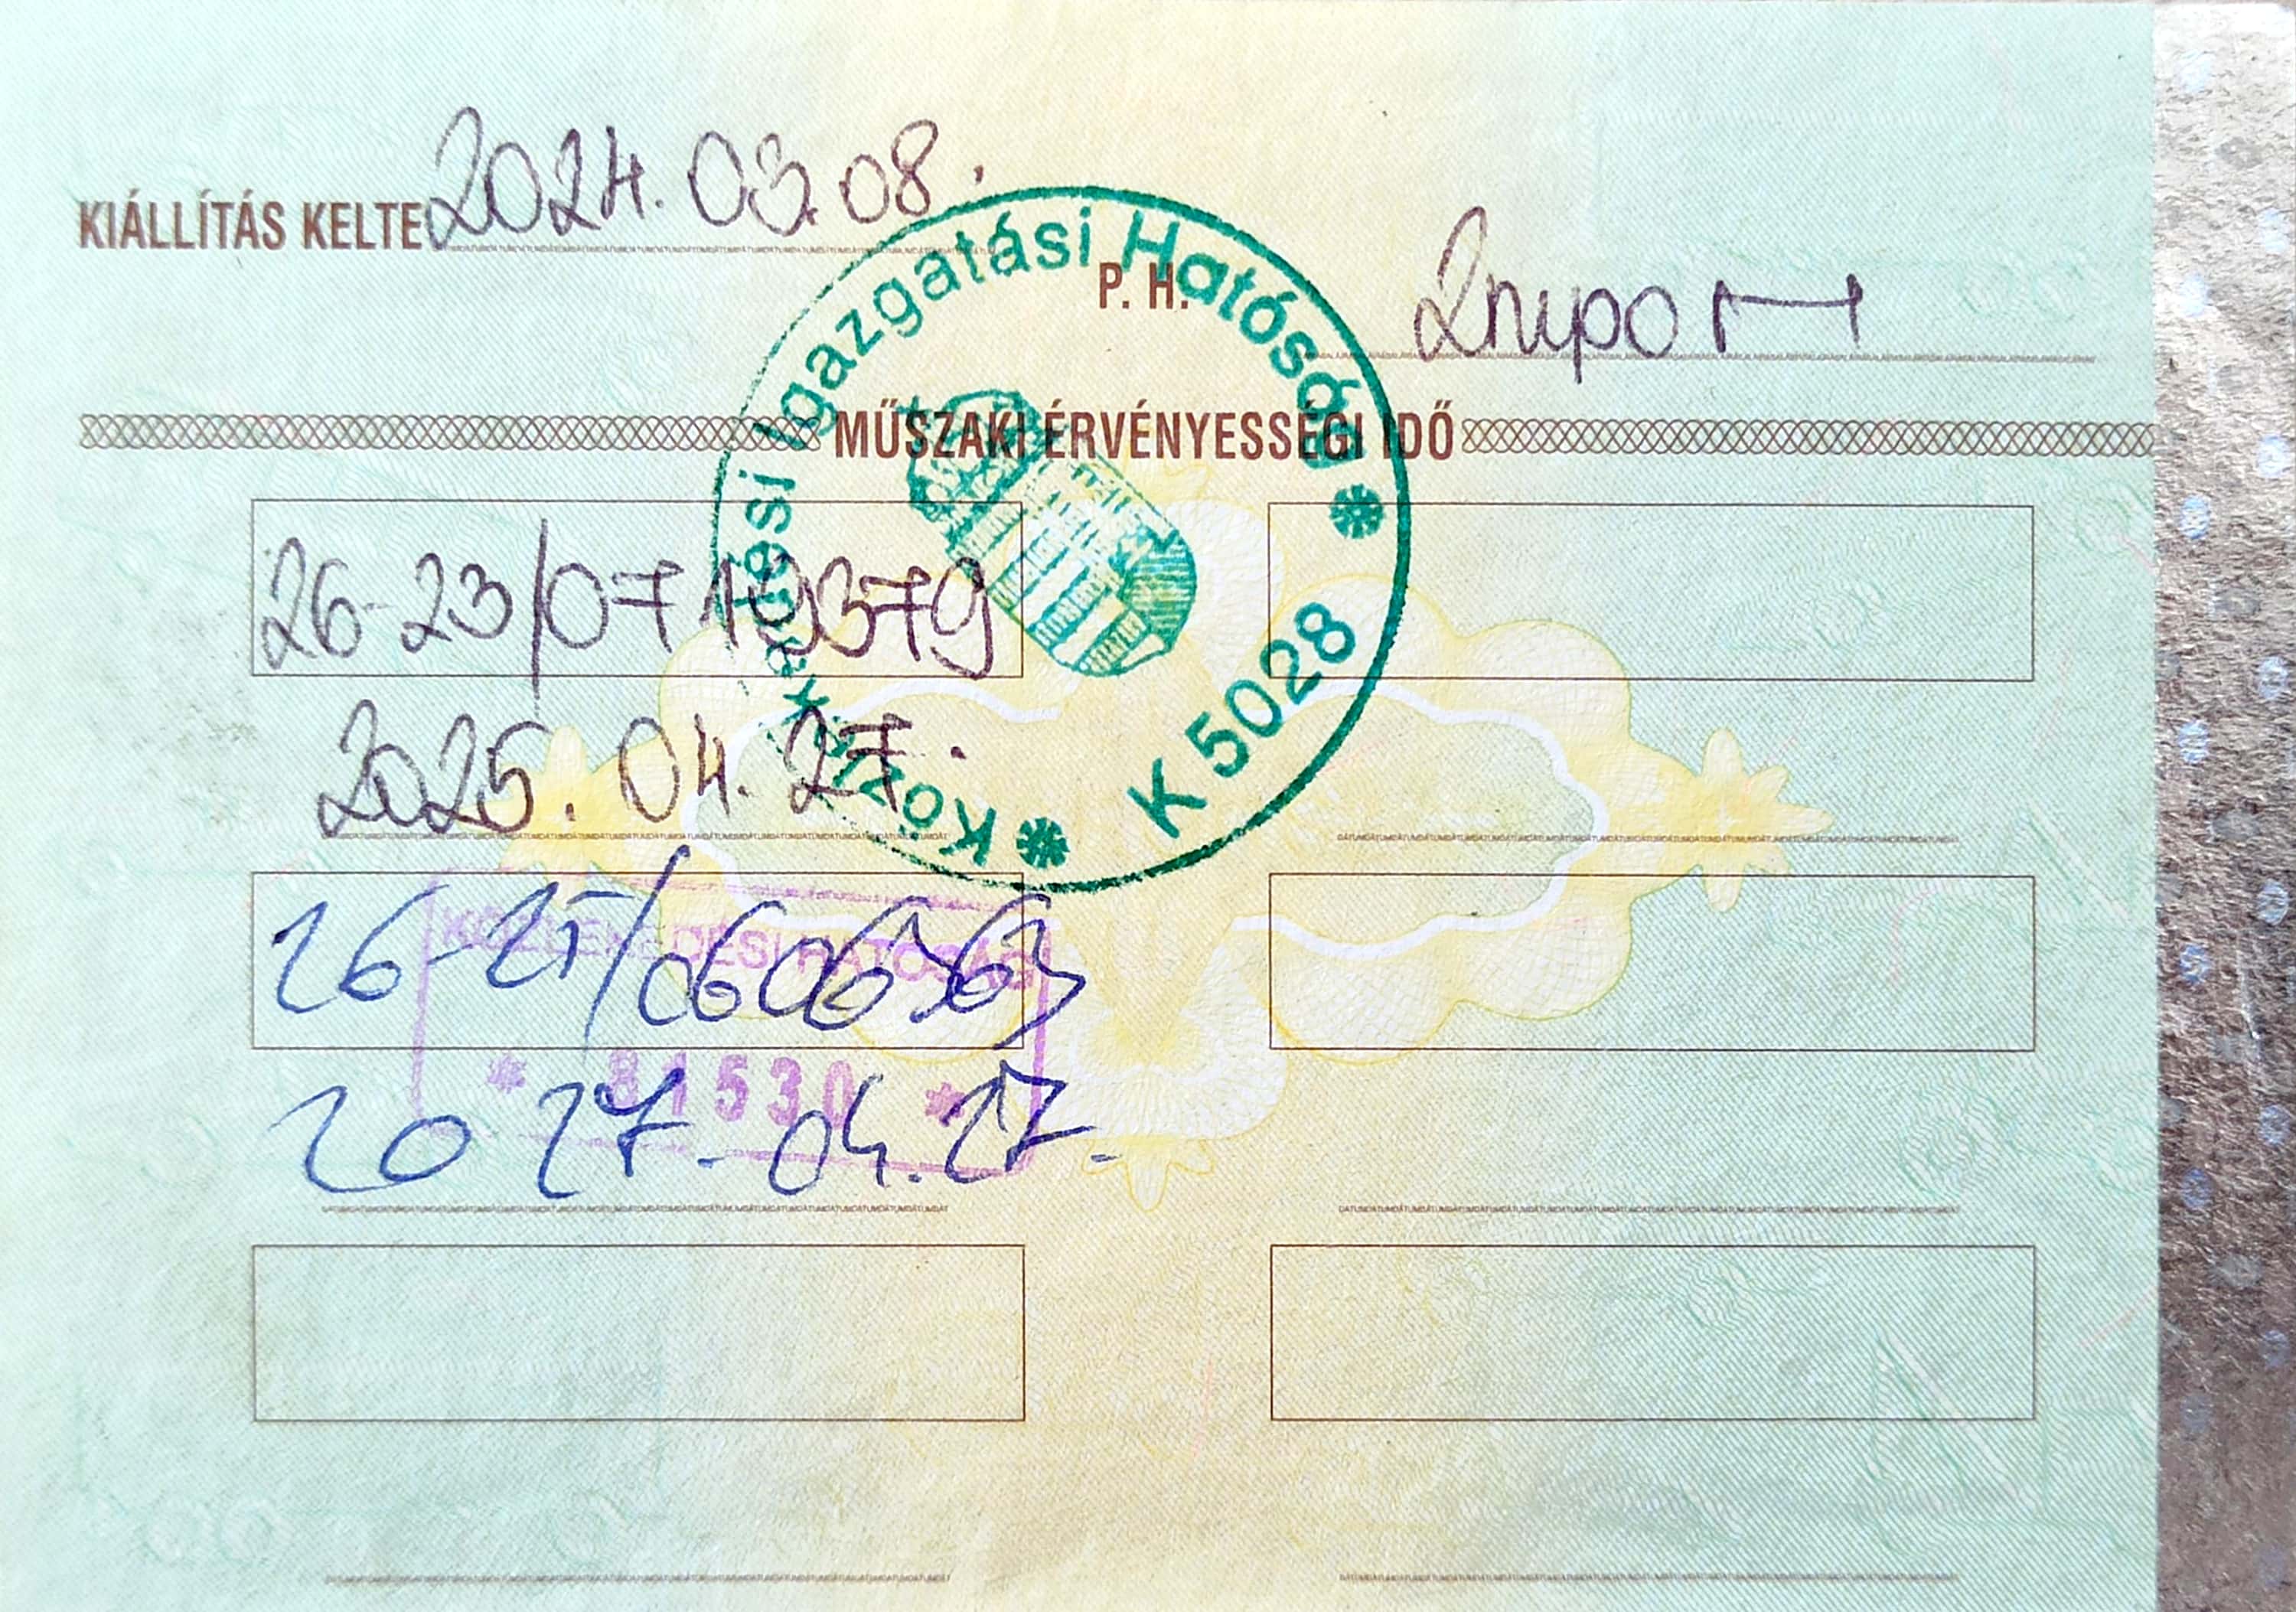 KIÁLLÍTÁS KELTE 2024.03.08.
P. H.
Közlekedési Igazgatási Hatóság
K 5028
MŰSZAKI ÉRVÉNYESSÉGI IDŐ
26-23/0719379
2025.04.27.
26-25/0606363
KÖZLEKEDÉSI HATÓSÁG
* 81530 *
2027.04.27.